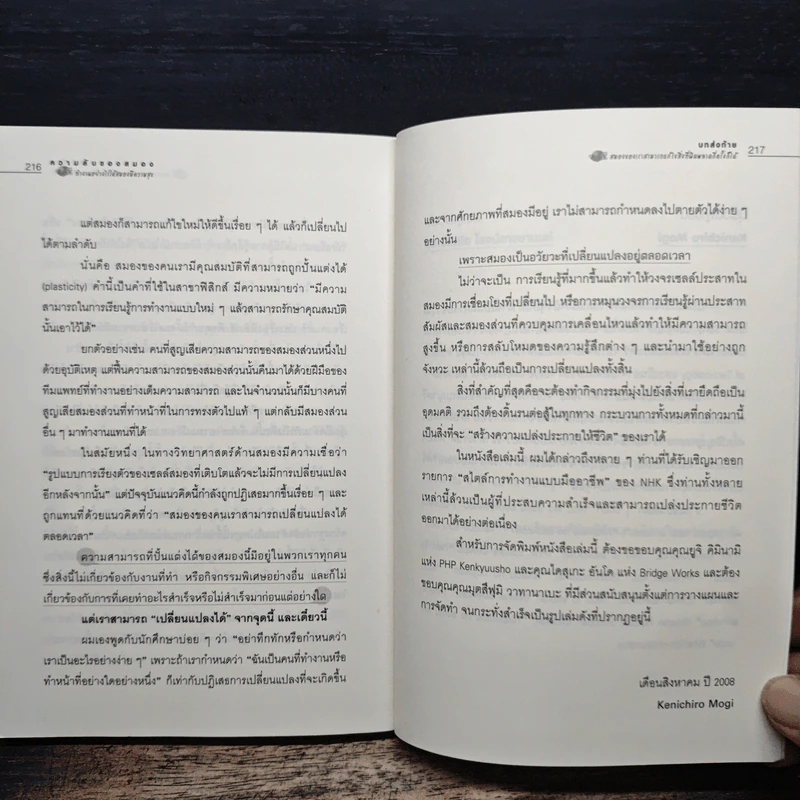 216
ความลับของสมอง
ทำงานอย่างไรให้สมองมีความสุข
แต่สมองก็สามารถแก้ไขใหม่ให้ดีขึ้นเรื่อย ๆ ได้ แล้วก็เปลี่ยนไป
ได้ตามลำดับ
นั่นคือ สมองของคนเรามีคุณสมบัติที่สามารถถูกปั้นแต่งได้
(plasticity) คำนี้เป็นคำที่ใช้ในสาขาฟิสิกส์ มีความหมายว่า “มีความ
สามารถในการเรียนรู้การทำงานแบบใหม่ ๆ แล้วสามารถรักษาคุณสมบัติ
นั้นเอาไว้ได้”
ยกตัวอย่างเช่น คนที่สูญเสียความสามารถของสมองส่วนหนึ่งไป
ด้วยอุบัติเหตุ แต่ฟื้นความสามารถของสมองส่วนนั้นคืนมาได้ด้วยฝีมือของ
ทีมแพทย์ที่ทำงานอย่างเต็มความสามารถ และในจำนวนนั้นก็มีบางคนที่
สูญเสียสมองส่วนที่ทำหน้าที่ในการทรงตัวไปแท้ ๆ แต่กลับมีสมองส่วน
อื่น ๆ มาทำงานแทนที่ได้
ในสมัยหนึ่ง ในทางวิทยาศาสตร์ด้านสมองมีความเชื่อว่า
“รูปแบบการเรียงตัวของเซลล์สมองที่เติบโตแล้วจะไม่มีการเปลี่ยนแปลง
อีกหลังจากนั้น” แต่ปัจจุบันแนวคิดนี้กำลังถูกปฏิเสธมากขึ้นเรื่อย ๆ และ
ถูกแทนที่ด้วยแนวคิดที่ว่า “สมองของคนเราสามารถเปลี่ยนแปลงได้
ตลอดเวลา”
ความสามารถที่ปั้นแต่งได้ของสมองนี้มีอยู่ในพวกเราทุกคน
ซึ่งสิ่งนี้ไม่เกี่ยวข้องกับงานที่ทำ หรือกิจกรรมพิเศษอย่างอื่น และก็ไม่
เกี่ยวข้องกับการที่เคยทำอะไรสำเร็จหรือไม่สำเร็จมาก่อนแต่อย่างใด
แต่เราสามารถ “เปลี่ยนแปลงได้” จากจุดนี้ และเดี๋ยวนี้
ผมเองพูดกับนักศึกษาบ่อย ๆ ว่า “อย่าทึกทักหรือกำหนดว่า
เราเป็นอะไรอย่างง่าย ๆ” เพราะถ้าเรากำหนดว่า “ฉันเป็นคนที่ทำงานหรือ
ทำหน้าที่อย่างใดอย่างหนึ่ง” ก็เท่ากับปฏิเสธการเปลี่ยนแปลงที่จะเกิดขึ้น
บทส่งท้าย
217
และจากศักยภาพที่สมองมีอยู่ เราไม่สามารถกำหนดลงไปตายตัวได้ง่าย ๆ
อย่างนั้น
เพราะสมองเป็นอวัยวะที่เปลี่ยนแปลงอยู่ตลอดเวลา
ไม่ว่าจะเป็น การเรียนรู้ที่มากขึ้นแล้วทำให้วงจรเซลล์ประสาทใน
สมองมีการเชื่อมโยงที่เปลี่ยนไป หรือการหมุนวงจรการเรียนรู้ผ่านประสาท
สัมผัสและสมองส่วนที่ควบคุมการเคลื่อนไหวแล้วทำให้มีความสามารถ
สูงขึ้น หรือการสลับโหมดของความรู้สึกต่าง ๆ และนำมาใช้อย่างถูก
จังหวะ เหล่านี้ล้วนถือเป็นการเปลี่ยนแปลงทั้งสิ้น
สิ่งที่สำคัญที่สุดคือจะต้องทำกิจกรรมที่มุ่งไปยังสิ่งที่เรายึดถือเป็น
อุดมคติ รวมถึงต้องดิ้นรนต่อสู้ในทุกทาง กระบวนการทั้งหมดที่กล่าวมานี้
เป็นสิ่งที่จะ “สร้างความเปล่งประกายให้ชีวิต” ของเราได้
ในหนังสือเล่มนี้ ผมได้กล่าวถึงหลาย ๆ ท่านที่ได้รับเชิญมาออก
รายการ “สไตล์การทำงานแบบมืออาชีพ” ของ NHK ซึ่งท่านทั้งหลาย
เหล่านี้ล้วนเป็นผู้ที่ประสบความสำเร็จและสามารถเปล่งประกายชีวิต
ออกมาได้อย่างต่อเนื่อง
สำหรับการจัดพิมพ์หนังสือเล่มนี้ ต้องขอขอบคุณคุณยูจิ คิมินามิ
แห่ง PHP Kenkyuusho และคุณไดสุเกะ อันโด แห่ง Bridge Works และต้อง
ขอบคุณคุณมุตสึฟุมิ วาทานาเบะ ที่มีส่วนสนับสนุนตั้งแต่การวางแผนและ
การจัดทำ จนกระทั่งสำเร็จเป็นรูปเล่มดังที่ปรากฏอยู่นี้
เดือนสิงหาคม ปี 2008
Kenichiro Mogi